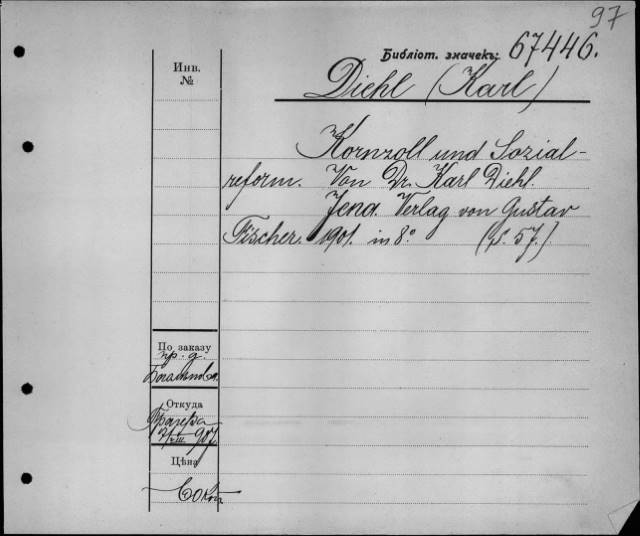 97
Библіот. значекъ: 67446.
Инв.
№
Diehl (Karl)
Kornzoll und Sozial-
reform. Von Dr. Karl Diehl.
Jena. Verlag von Gustav
Fischer. 1901. in 8° (S. 57.)
По заказу
пр. д.
Откуда
907.
Цѣна
60 коп